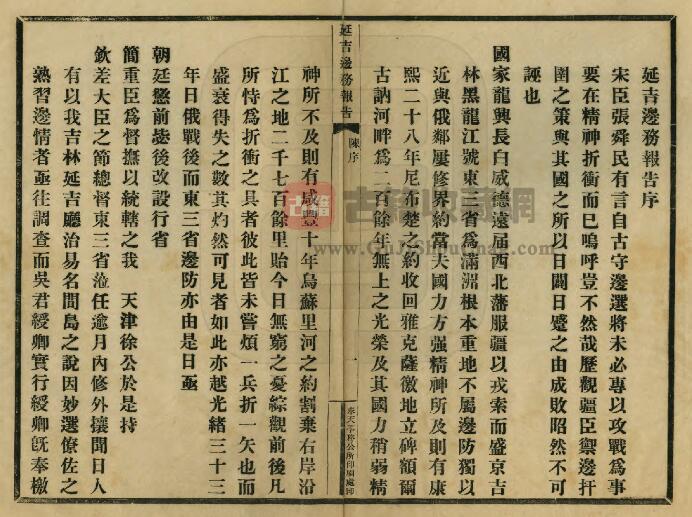 延吉邊務報告序
宋臣張舜民有言自古守邊選將未必專以攻戰爲事
要在精神折衝而已嗚呼豈不然哉歷觀疆臣禦邊扞
圉之策與其國之所以日闢日蹙之由成敗昭然不可
誣也
國家龍興長白威德遠屆西北藩服疆以戎索而盛京吉
林黑龍江號東三省爲滿洲根本重地不屬邊防獨以
近與俄鄰屢修界約當夫國力方强精神所及則有康
熙二十八年尼布楚之約收回雅克薩徼地立碑額爾
古訥河畔爲二百餘年無上之光榮及其國力稍弱精
延吉邊務報告
陳序
一
奉天學務公所印刷處印
神所不及則有咸豐十年烏蘇里河之約割棄右岸沿
江之地二千七百餘里貽今日無窮之憂綜觀前後凡
所恃爲折衝之具者彼此皆未嘗煩一兵折一矢也而
盛衰得失之數其灼然可見者如此亦越光緒三十三
年日俄戰後而東三省邊防亦由是日亟
朝廷懲前毖後改設行省
簡重臣爲督撫以統轄之我 天津徐公於是持
欽差大臣之節總督東三省涖任逾月內修外攘聞日人
有以我吉林延吉廳治易名間島之說因妙選僚佐之
熟習邊情者亟往調查而吳君綬卿實行綬卿既奉檄
古籍收藏網
www.GuJiShuCang.com